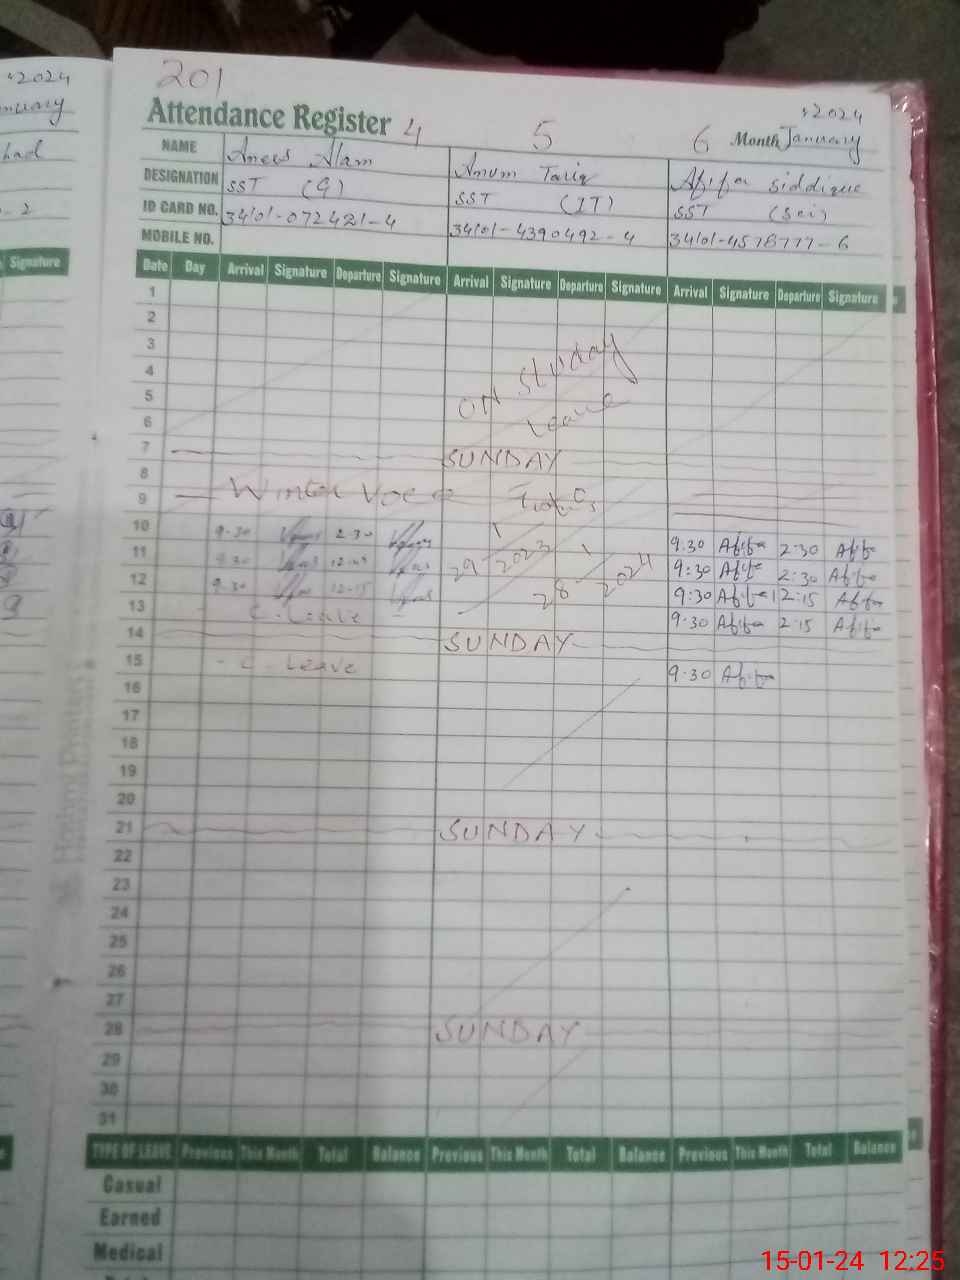 201
Attendance Register 4 5 6 Month January 2024
NAME Anees Alam Anum Tariq Afifa Siddique
DESIGNATION SST (G) SST (IT) SST (Sci)
ID CARD NO. 34101-072421-4 34101-4390492-4 34101-4578777-6
MOBILE NO.
Date Day Arrival Signature Departure Signature Arrival Signature Departure Signature Arrival Signature Departure Signature
1
2
3
4
5
6
ON Studay
Leave
7 SUNDAY
8
9 Winter
10 9.30 2.30 9.30 Afifa 2.30 Afifa
11 9.30 9:30 Afifa 2:30 Afifa
12 9.30 12.15 9:30 Afifa 12:15 Afifa
13 C. Leave 9.30 Afifa 2.15 Afifa
29 1 2023 28 1 2024
14 SUNDAY
15 - C - Leave 9.30 Afifa
16
17
18
19
20
21 SUNDAY
22
23
24
25
26
27
28 SUNDAY
29
30
31
TYPE OF LEAVE Previous This Month Total Balance Previous This Month Total Balance Previous This Month Total Balance
Casual
Earned
Medical
2024
nuary
had
2
Signature
15-01-24 12:25